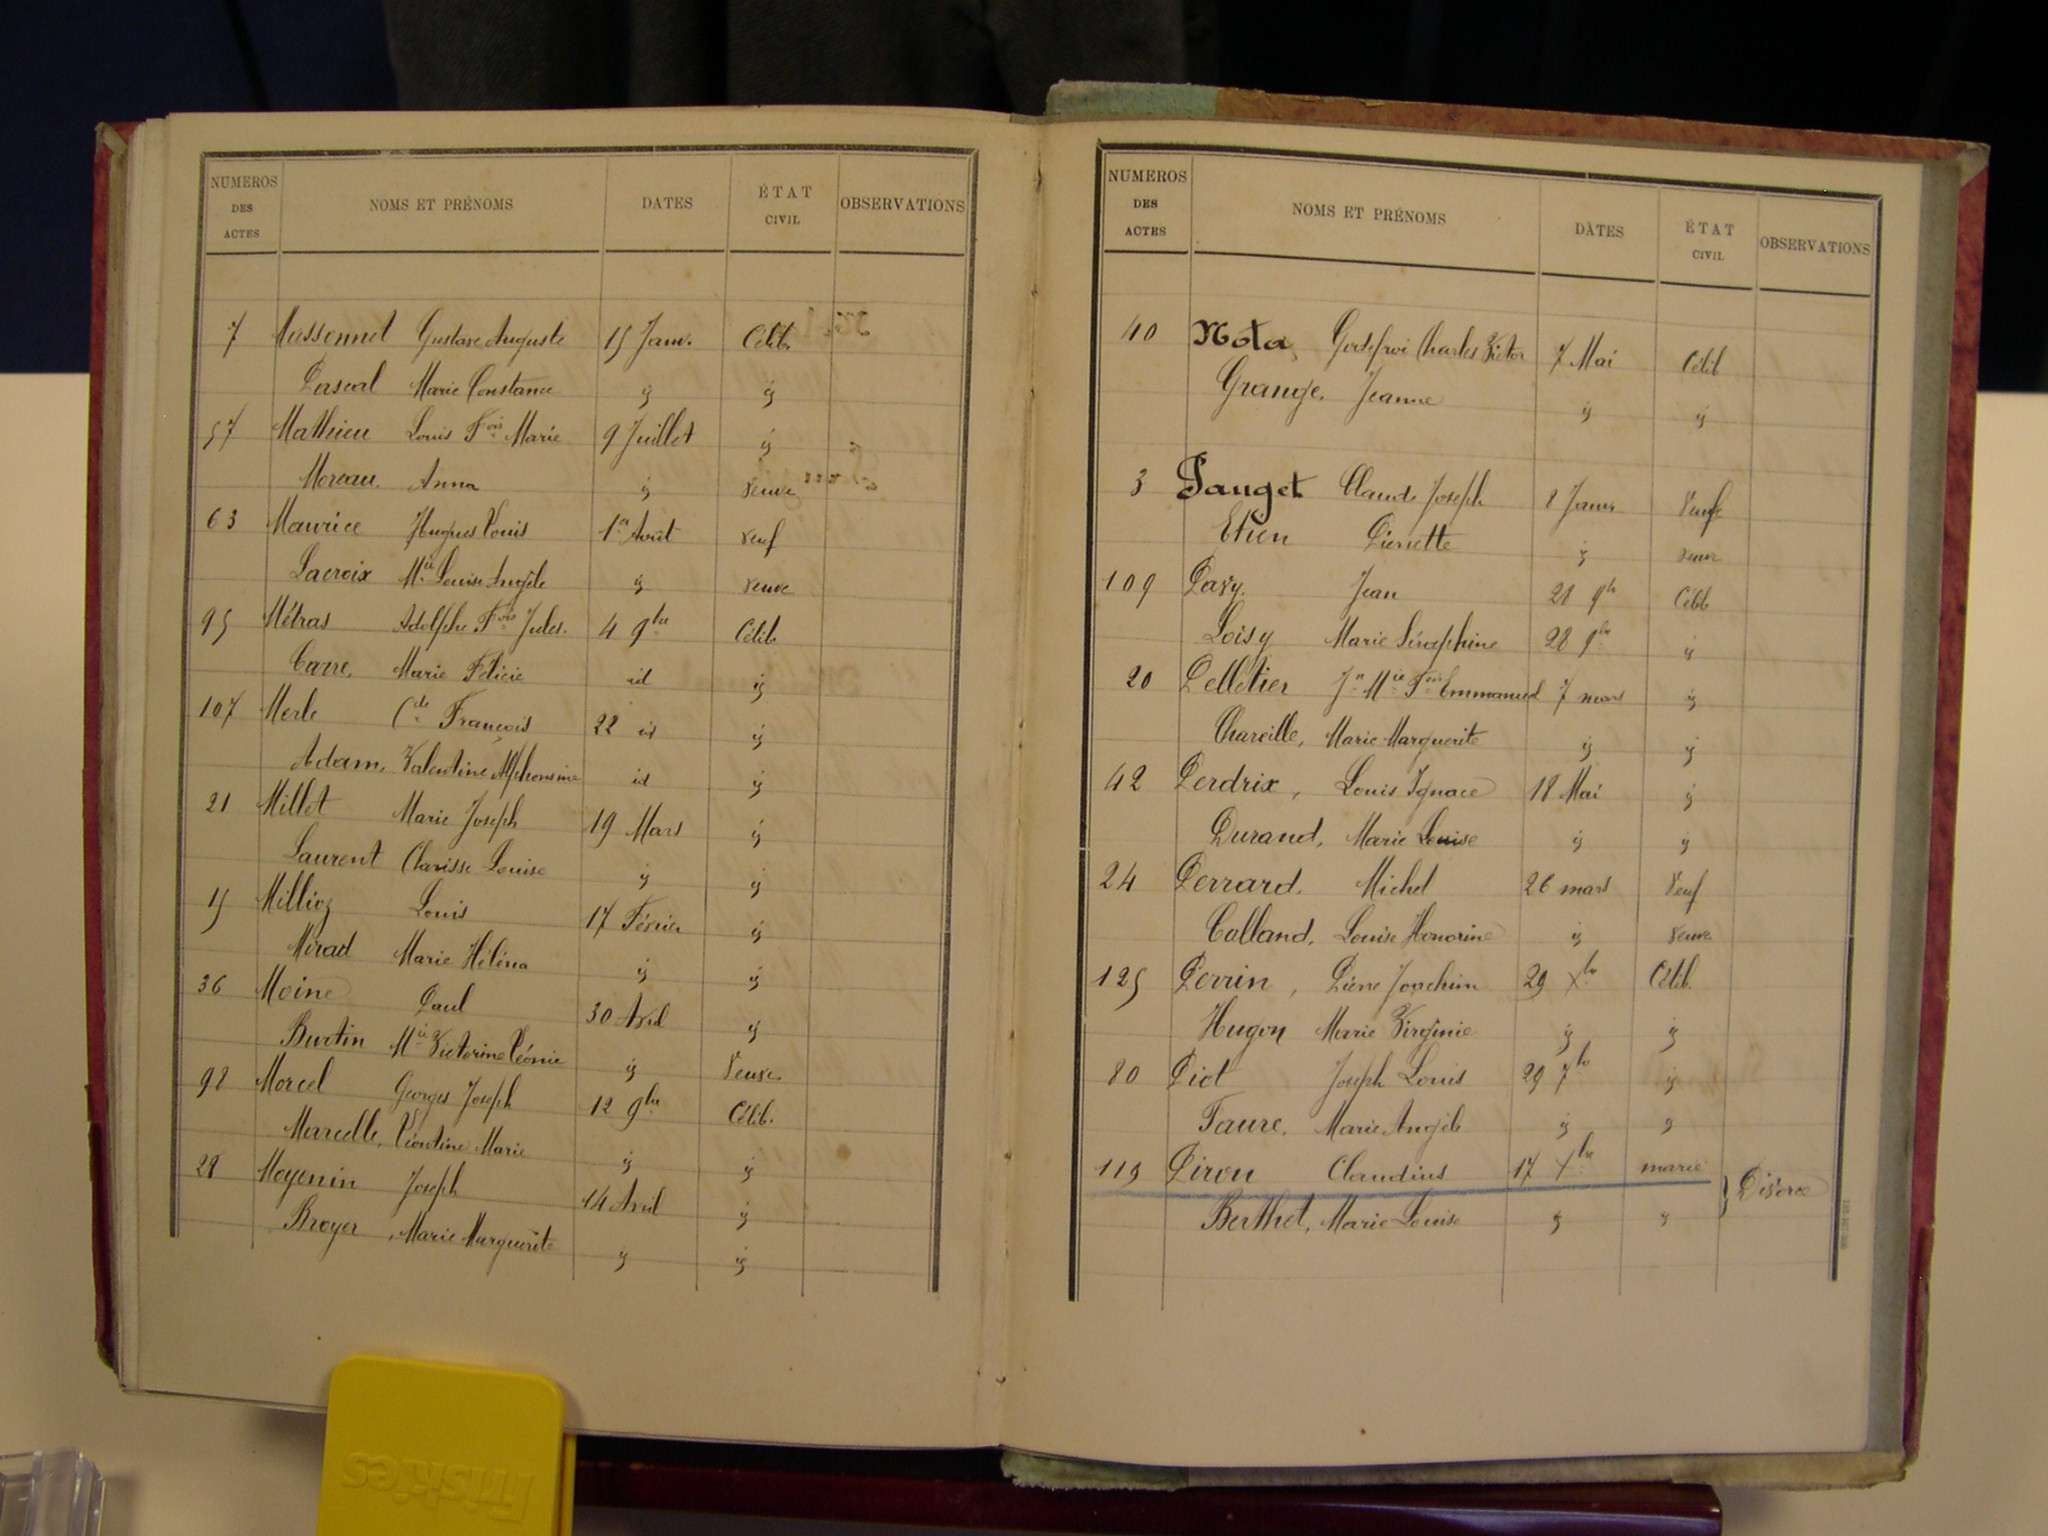 NUMEROS DES ACTES NOMS ET PRÉNOMS DATES ÉTAT CIVIL OBSERVATIONS
7 Massonnet Gustave Auguste 15 Janv. Célib.
Pascal Marie Constance ij ij
57 Mathieu Louis Fois Marie 9 Juillet ij
Moreau Anna ij veuve
63 Maurice Hugues Louis 1er Août veuf
Lacroix Mie Louise Angèle ij veuve
95 Métras Adolphe Fois Jules. 4 9bre Célib
Carre, Marie Félicie id ij
107 Merle Cde François 22 id ij
Adam, Valentine Alphonsine id ij
21 Millet Marie Joseph 19 Mars ij
Laurent Clarisse Louise ij ij
15 Millioz Louis 17 Février ij
Mérad Marie Héléna ij ij
36 Moine Paul 30 Avril ij
Burtin Mie Victorine Léonie ij Veuve
98 Morcel Georges Joseph 12 9bre Célib.
Marcelle, Léontine Marie ij ij
28 Moyenin Joseph 14 Avril ij
Broyer, Marie Marguerite ij ij
NUMEROS DES ACTES NOMS ET PRÉNOMS DATES ÉTAT CIVIL OBSERVATIONS
40 Nota, Godefroi Charles Victor 7 Mai Célib
Grange, Jeanne ij ij
3 Panget Claude Joseph 8 Janv Veuf
Etien Pierrette ij veuve
109 Pasy Jean 28 9bre Célib
Loisy Marie Séraphine 28 9bre ij
20 Pelletier Jn Mie Fois Emmanuel 7 mars ij
Chareille, Marie Marguerite ij ij
42 Perdrix, Louis Ignace 18 Mai ij
Durand, Marie Louise ij ij
24 Perrard, Michel 26 mars Veuf
Calland, Louise Honorine ij veuve
125 Perrin, Pierre Joachim 29 Xbre Célib.
Hugon Marie Virginie ij ij
80 Piot Joseph Louis 29 7bre ij
Faure, Marie Angèle ij ij
119 Piron Claudius 17 Xbre marié
Berthet, Marie Louise ij ij } Divorce
Friskies